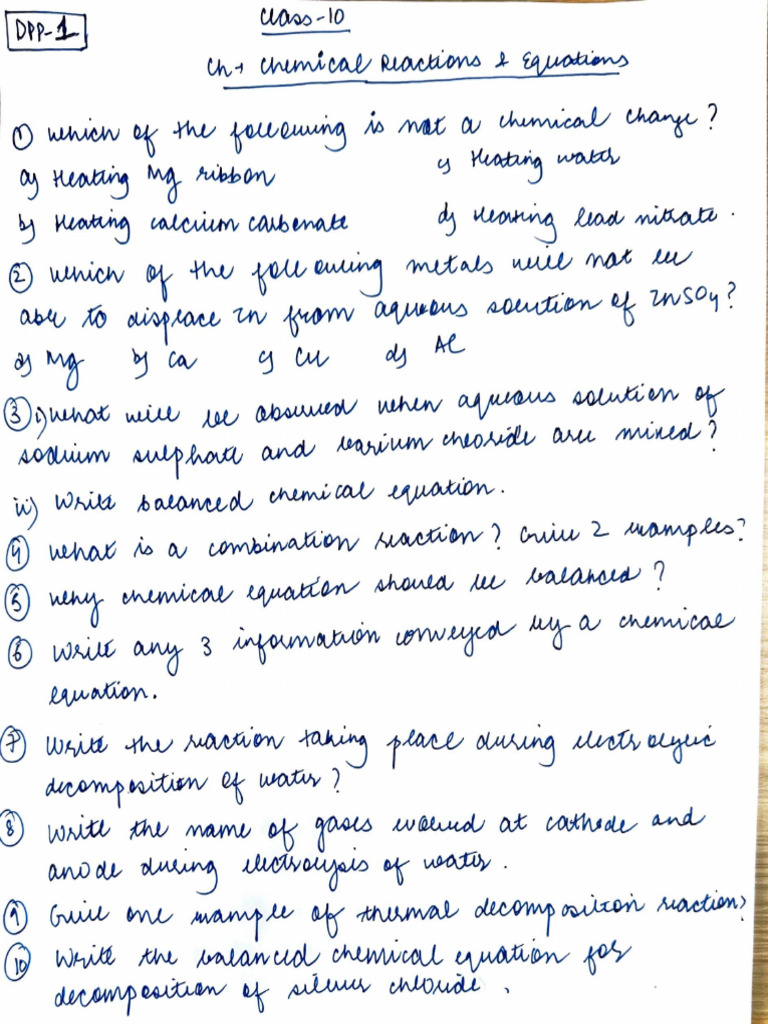 DPP-1
Class-10
Ch → Chemical Reactions & Equations
① which of the following is not a chemical change?
a) Heating Mg ribbon
c) Heating water
b) Heating calcium carbonate
d) Heating lead nitrate.
② which of the following metals will not be
able to displace Zn from aqueous solution of ZnSO4?
a) Mg b) Ca c) Cu d) Al
③ i) what will be observed when aqueous solution of
sodium sulphate and barium chloride are mixed?
ii) Write balanced chemical equation.
④ what is a combination reaction? Give 2 examples?
⑤ why chemical equation should be balanced?
⑥ Write any 3 information conveyed by a chemical
equation.
⑦ Write the reaction taking place during electrolytic
decomposition of water?
⑧ Write the name of gases evolved at cathode and
anode during electrolysis of water.
⑨ Give one example of thermal decomposition reaction?
⑩ Write the balanced chemical equation for
decomposition of silver chloride.